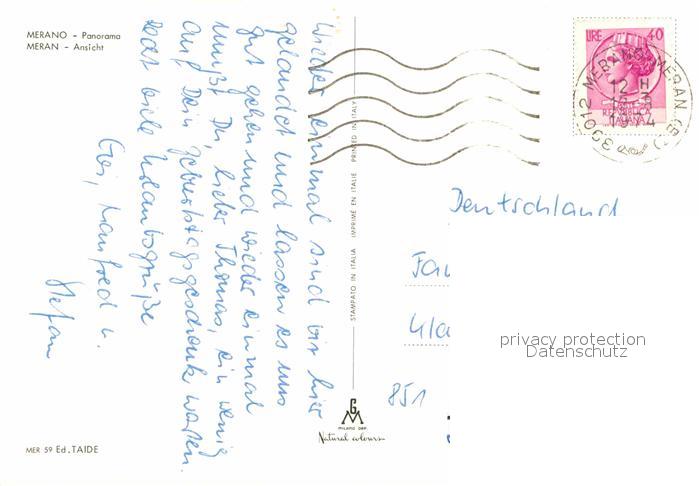 MERANO - Panorama
MERAN - Ansicht
Wieder einmal sind wir hier
gelandet und lassen es uns
gut gehen und wieder einmal
mußt Du, lieber Thomas, ein wenig
auf Dein Geburtstagsgeschenk warten.
viele Urlaubsgrüße
Manfred u.
Stefan
MER 59 Ed. TAIDE
STAMPATO IN ITALIA IMPRIMÉ EN ITALIE PRINTED IN ITALY
GM
MILANO DEP.
Natural colours
LIRE 40
REPUBBLICA
ITALIANA
39012 MERANO-MERAN (BZ)
Deutschland
Fa
Kla
851
privacy protection
Datenschutz